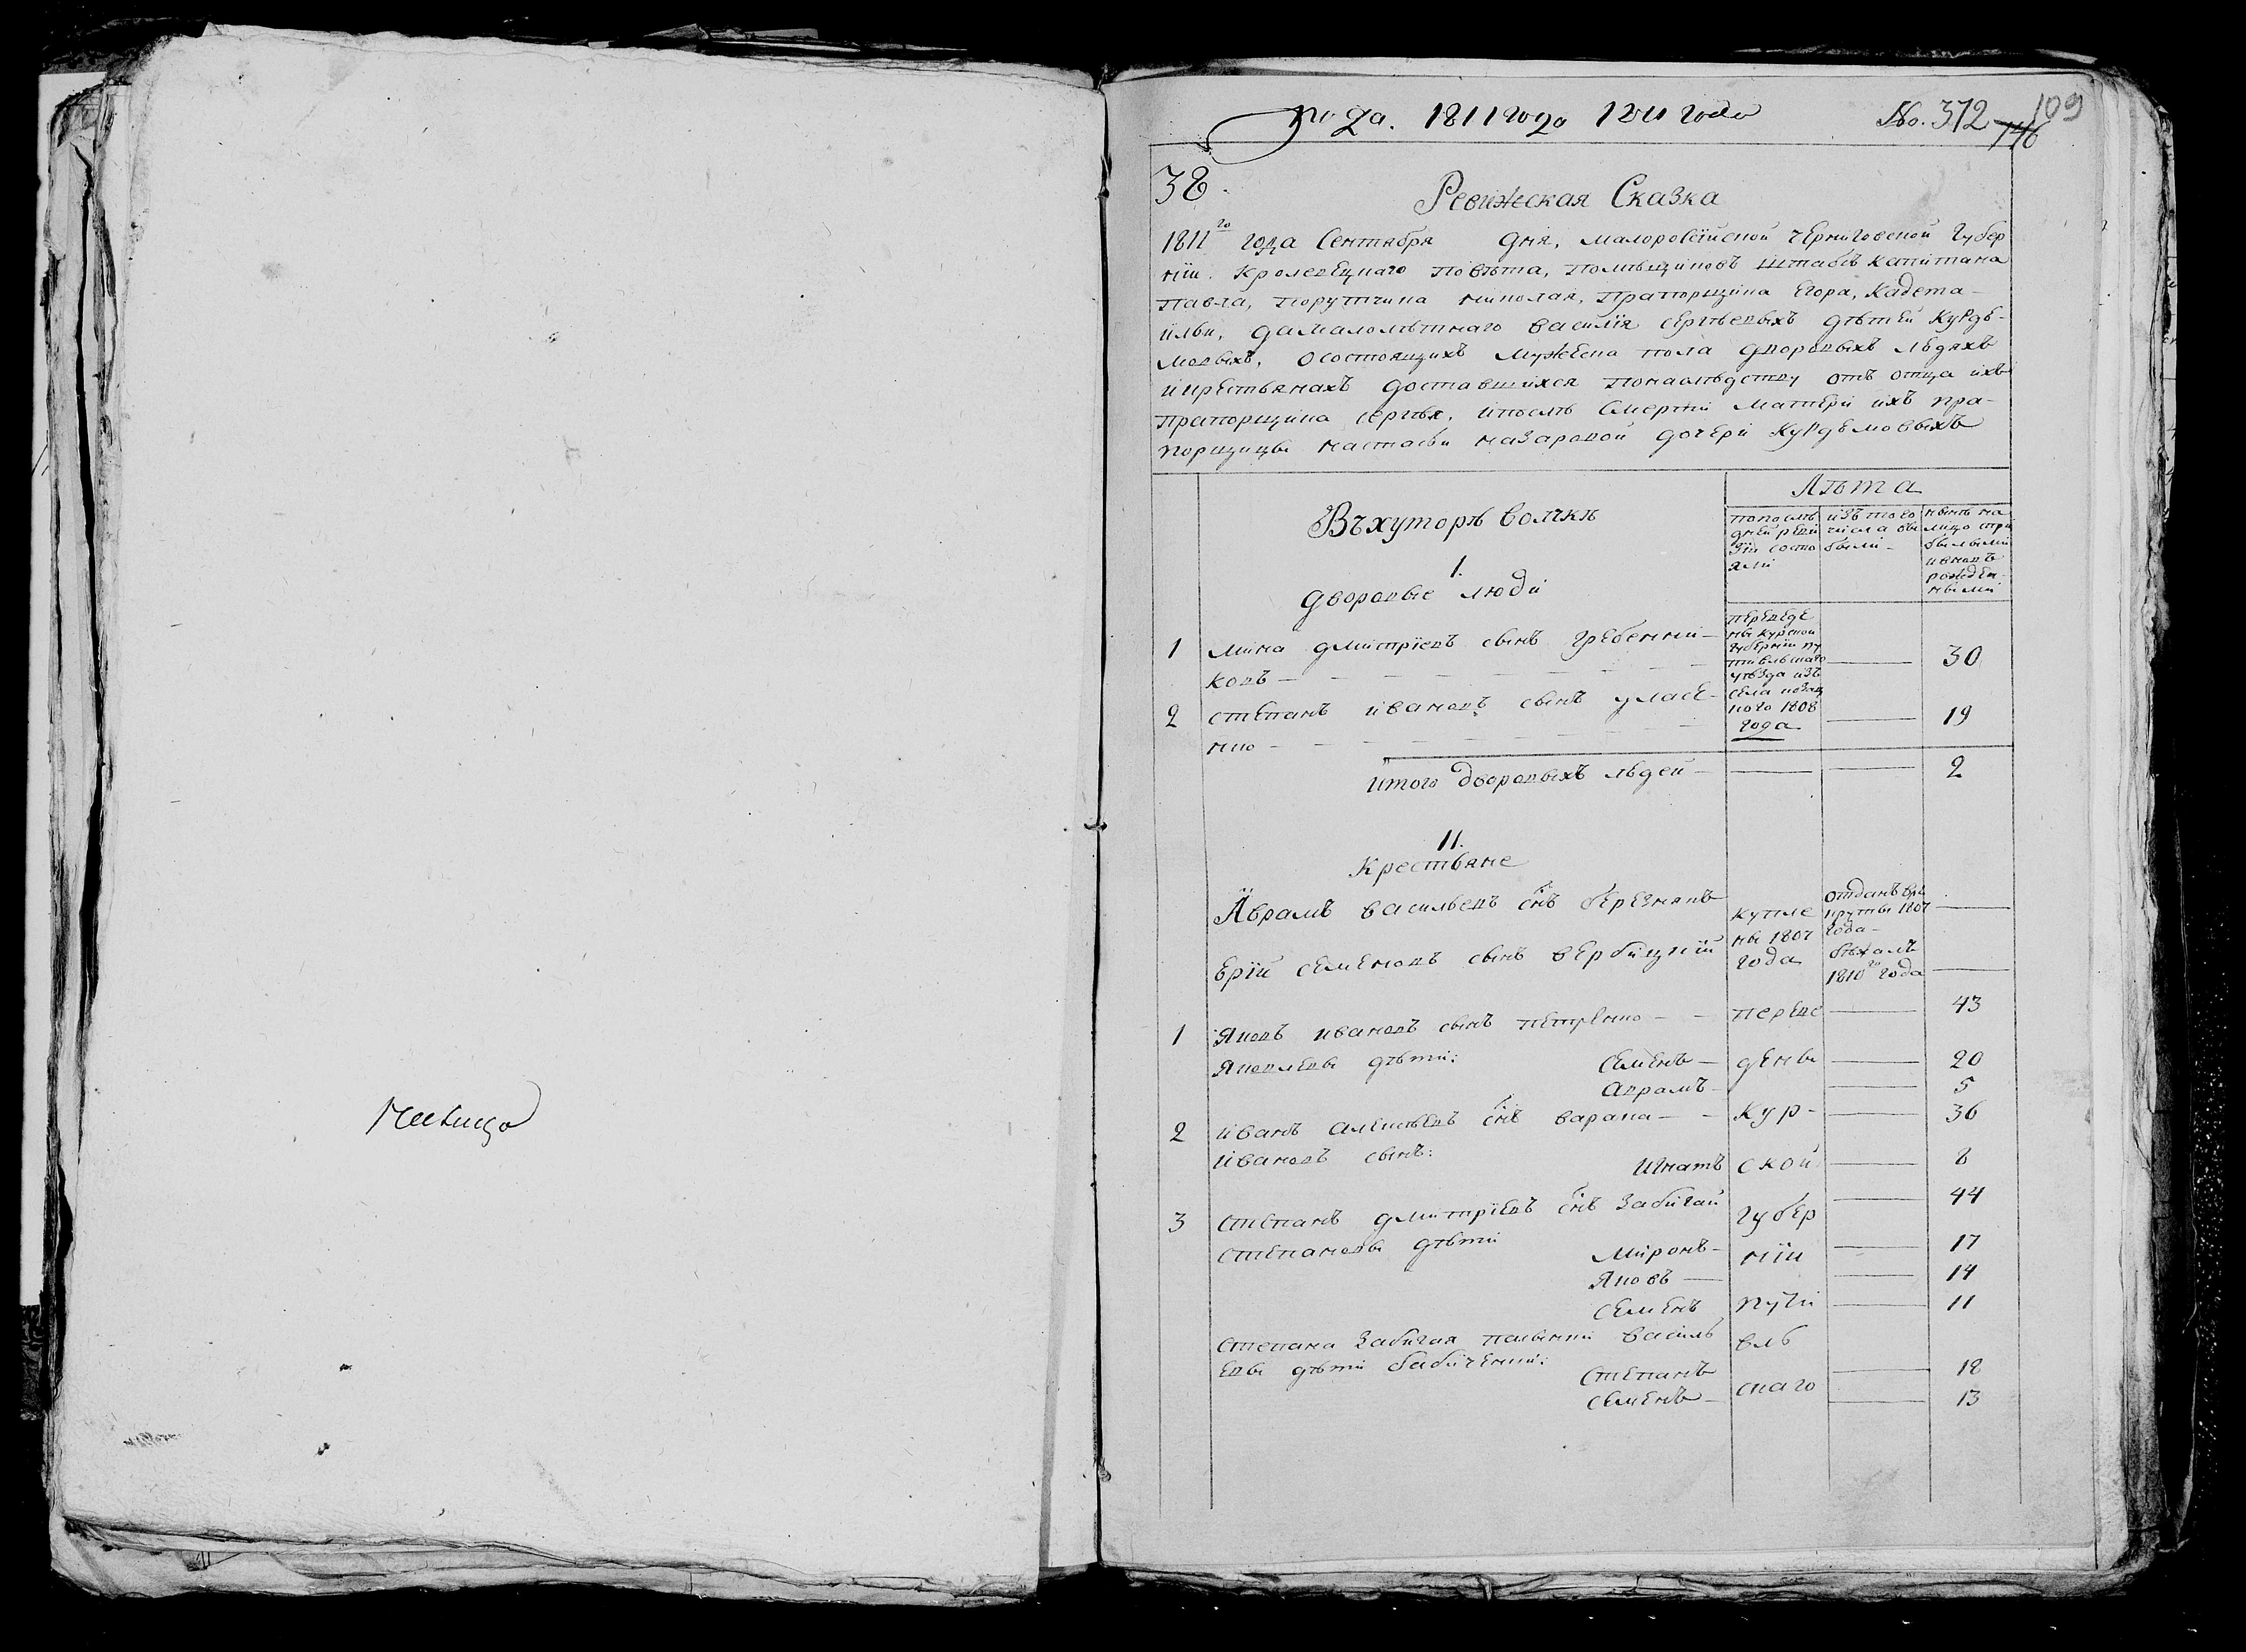 года. 1811 года 1811 года
No. 372
109
146
38.
Ревижская Сказка
1811го года Сентября дня, малоросiйской черниговской губер
нiи. Кролевецкаго повѣта, помѣщиковъ штабсъ капитана
павла, порутчика николая, прапорщика Егора, кадета
ильи, дамалолѣтнаго василiя сергѣевыхъ дѣтей Курдю-
мовыхъ, осостоящихъ мужеска пола дворовыхъ людяхъ
икрестьянахъ доставшихся понаслѣдству отъ отца ихъ
прапорщика сергѣя, ипослѣ смерти матери ихъ пра-
порщицы настасьи назаровой дочери Курдюмовыхъ
Въхуторѣ волчкѣ
Лѣта
попослѣ
дней реви
зiи состо
яли
изъ того
числа вы
были
нынѣ на
лицо спри
былыми
ивновь
рожден-
ными
I.
дворовые люди
1 мина дмитрiевъ сынъ гребенни-
ковъ
переведе
ны курской
губернiи пу
тивльскаго
уѣзда изъ
села козац
кого 1808
года
30
2 степанъ ивановъ сынъ уласе-
нко
19
итого дворовыхъ людей 2
II.
Крестьяне
Аврамъ васильевъ снъ березнякъ
купле
ны 1807
года
отданъ врѣ
круты 1807
года
Ерiй семеновъ сынъ вербицкiй
бѣжалъ
1810го года
1 Яковъ ивановъ сынъ петренко переве 43
Яковлевы дѣти: семенъ дены 20
аврамъ 5
2 иванъ алексѣевъ снъ варака кур- 36
ивановъ сынъ: игнатъ ской 8
3 степанъ дмитрiевъ снъ забигай губер 44
степановы дѣти миронъ нiи 17
Яковъ 14
семенъ пути 11
степана забигая пасынки василь вль
евы дѣти бабиченки:
степанъ 18
семенъ скаго 13